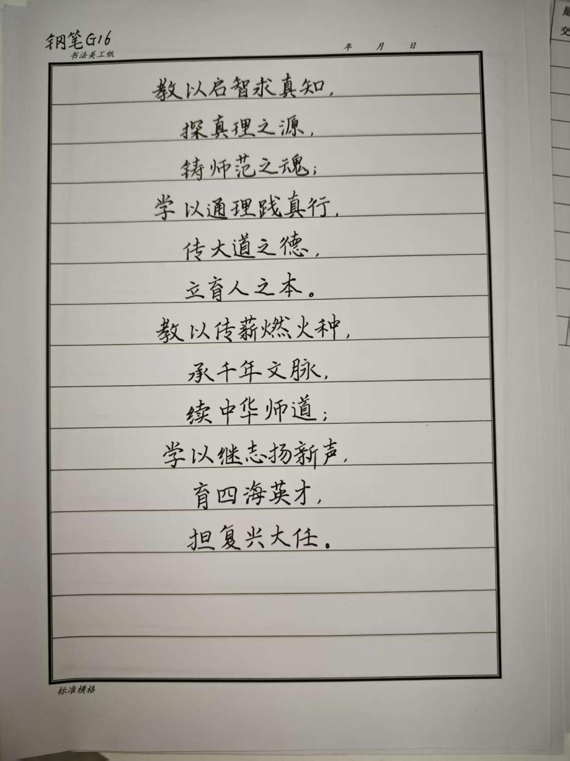 钢笔G16
书法美工纸
年 月 日
教以启智求真知，
探真理之源，
铸师范之魂；
学以通理践真行，
传大道之德，
立育人之本。
教以传薪燃火种，
承千年文脉，
续中华师道；
学以继志扬新声，
育四海英才，
担复兴大任。
标准横格